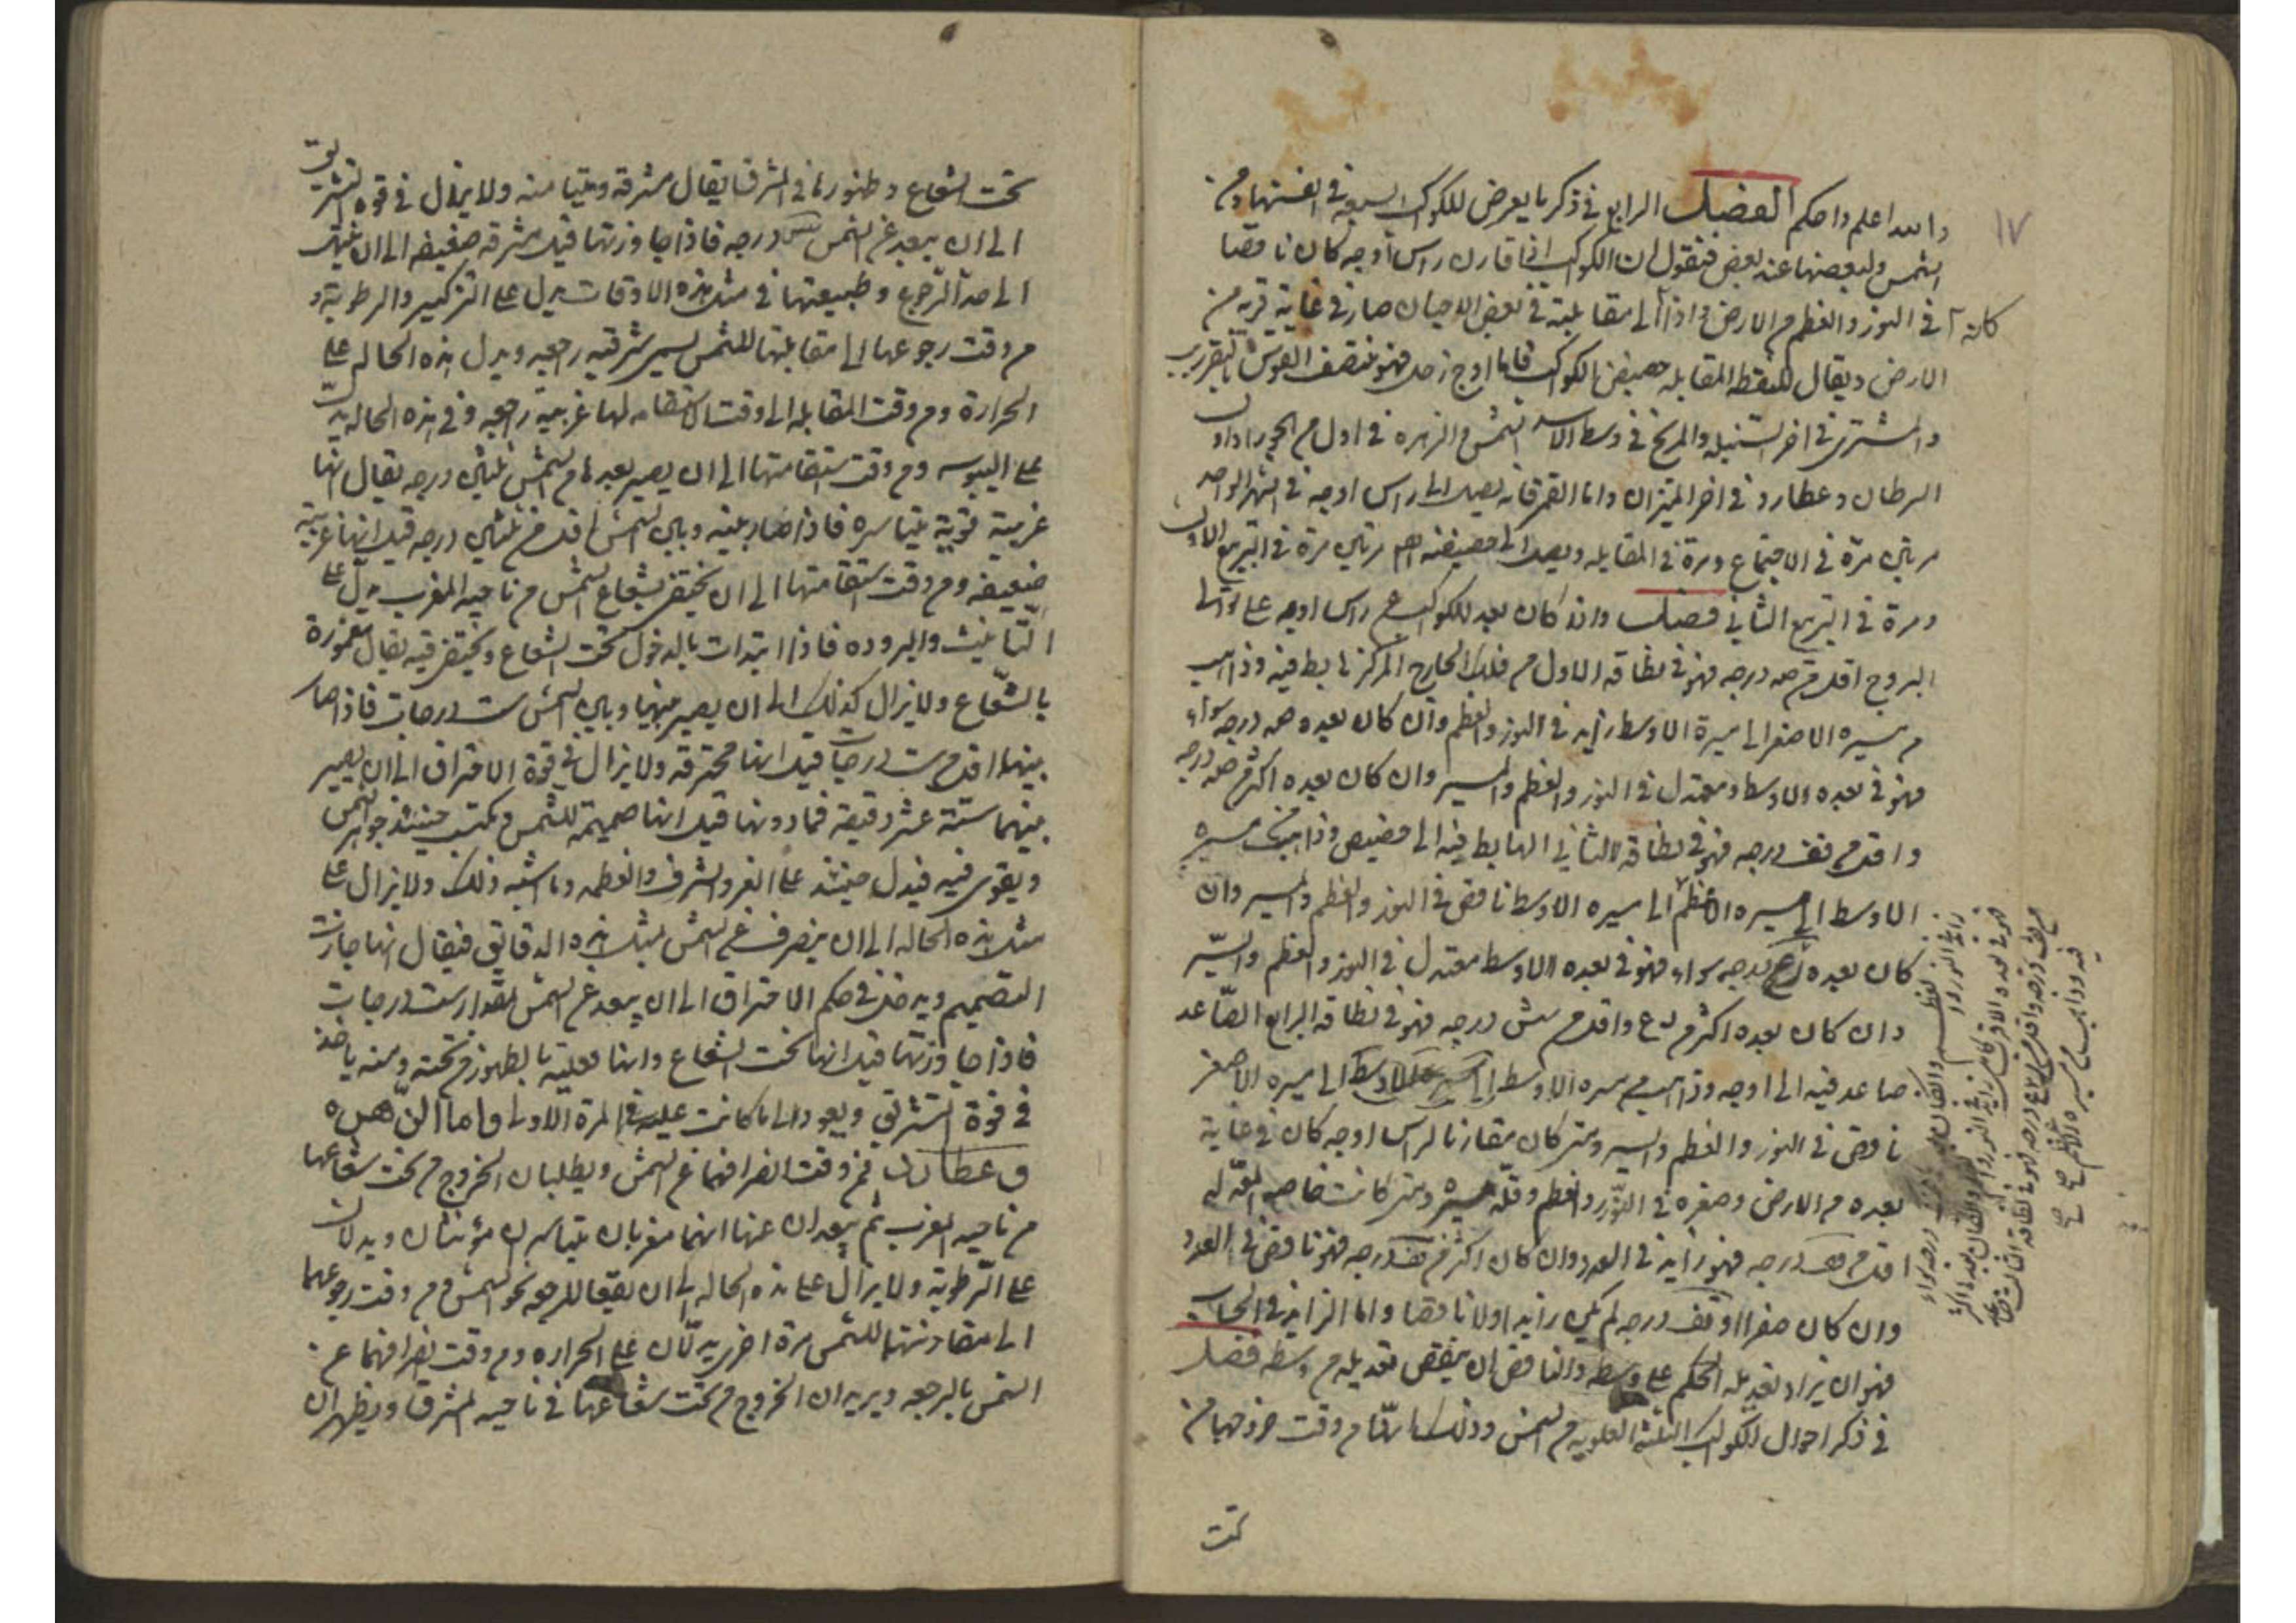 ١٧
والله اعلم واحكم الفصل الرابع في ذكر ما يعرض للكواكب السبعة في انفسها ومن
الشمس ولبعضها عند بعض فنقول ان الكواكب اذا قارن راس اوجه كان ناقصا
في النور والعظم من الارض واذا الى مقابلته في بعض الاحيان صار في غاية قربه من
كانه
الارض ويقال للنقطه المقابله حضيض الكواكب فاما اوج زحل فهو منتصف القوس بالتقريب
والمشتري في اخر السنبله والمريخ في وسط الاسد الشمس والزهره في اول من الجوزا
السرطان وعطارد في اخر الميزان واما القمر فانه يصل الى راس اوجه في الشهر الواحد
مرتين مرة في الاجتماع ومرة في المقابله ويصل الى حضيضه مرتين مرة في التربيع الاول
ومرة في التربيع الثاني فصل واذا كان بعد الكواكب عن راس اوجه على توالي
البروج اقل من صه درجه فهو في نطاقه الاول من فلك الخارج المركز هابط فيه وذاهب
من سيره الاصغر الى سيره الاوسط زايد في النور والعظم وان كان بعده صه درجه سواء
فهو في بعده الاوسط ومعتدل في النور والعظم والمسير وان كان بعده اكثر من صه درجه
واقل من قف درجه فهو في نطاقه الثاني الهابط فيه الى حضيض وذاهب من سيره
الاوسط الى سيره الاعظم الى سيره الاوسط ناقص في النور والعظم والمسير وان
كان بعده رع درجه سواء فهو في بعده الاوسط معتدل في النور والعظم والسير
وان كان بعده اكثر من رع واقل من شس درجه فهو في نطاقه الرابع الصاعد
صاعد فيه الى اوجه وذاهب من سيره الاوسط الى سيره الاصغر
ناقص في النور والعظم والسير ومتى كان مقارنا لراس اوجه كان في غاية
بعده من الارض وصغره في النور والعظم وقلة سيره ومتى كانت خاصه المعدله
اقل من قف درجه فهو زايد في العدد وان كان اكثر من قف درجه فهو ناقص في العدد
وان كان صفرا او قف درجه لم يكن زايدا ولا ناقصا واما الزايد في الحساب
فهو ان يزاد تعديله المحكم على وسطه والناقص ان ينقص تعديله من وسطه فصل
في ذكر احوال الكواكب الثلثه العلويه من الشمس وذلك انها من وقت خروجها من
تحت
تحت الشعاع وظهورها في المشرق يقال مشرقه وميتا منه ولا يزال في قوة التشريق
الى ان يبعد عن الشمس درجه فاذا جاوزتها قيل مشرقه ضعيفه الى ان ينتهي
الى حد الرجوع وطبيعتها في مثل هذه الاوقات يدل على التذكير والرطوبة و
من وقت رجوعها الى مقابلتها للشمس يسمى شرقيه راجعه ويدل هذه الحاله على
الحرارة ومن وقت المقابله الى وقت الاستقامه لها غربية راجعه وفي هذه الحاله يدل
على اليبوسه ومن وقت استقامتها الى ان يصير بعدها من الشمس ثلثين درجه يقال انها
غربية قوية متياسره فاذا صار بينه وبين الشمس اقل من ثلثين درجه قيل انها غربية
ضعيفه ومن وقت استقامتها الى ان يختفي بشعاع الشمس من ناحيه المغرب يدل على
التانيث والبروده فاذا ابتدات بالدخول تحت الشعاع ويختفي فيه يقال مغمورة
بالشعاع ولا يزال كذلك الى ان يصير بينها وبين الشمس ست درجات فاذا صار
بينهما اقل من ست درجات قيل انها محترقه ولا يزال في قوة الاحتراق الى ان يصير
بينهما ستة عشر دقيقة فما دونها قيل انها صميمة للشمس ويكتسب حينئذ جواهر الشمس
ويقوى فيه فيدل حينئذ على العز والشرف والعظمه وما اشبه ذلك ولا يزال على
مثل هذه الحاله الى ان ينصرف عن الشمس بمثل هذه الدقايق فيقال انها جازت
التصميم ويدخل في حكم الاحتراق الى ان يبعد عن الشمس بمقدار ست درجات
فاذا جاوزتها قيل انها تحت الشعاع وانها مقبلة بالظهور من تحته ومنه ياخذ
في قوة التشريق ويعود الى ما كانت عليه في المرة الاولى واما الزهره
وعطارد فمن وقت انصرافهما عن الشمس ويطلبان الخروج من تحت شعاعها
من ناحيه المغرب ثم يبعدان عنها انهما مغربان متياسران مؤنثان ويدلان
على الرطوبة ولا يزال على هذه الحاله الى ان يقفا للرجوع نحو الشمس ومن وقت رجوعهما
الى مقارنتهما للشمس مرة اخرى يدلان على الحراره ومن وقت انصرافهما عن
الشمس بالرجعه ويريدان الخروج من تحت شعاعها في ناحيه المشرق ويظهران